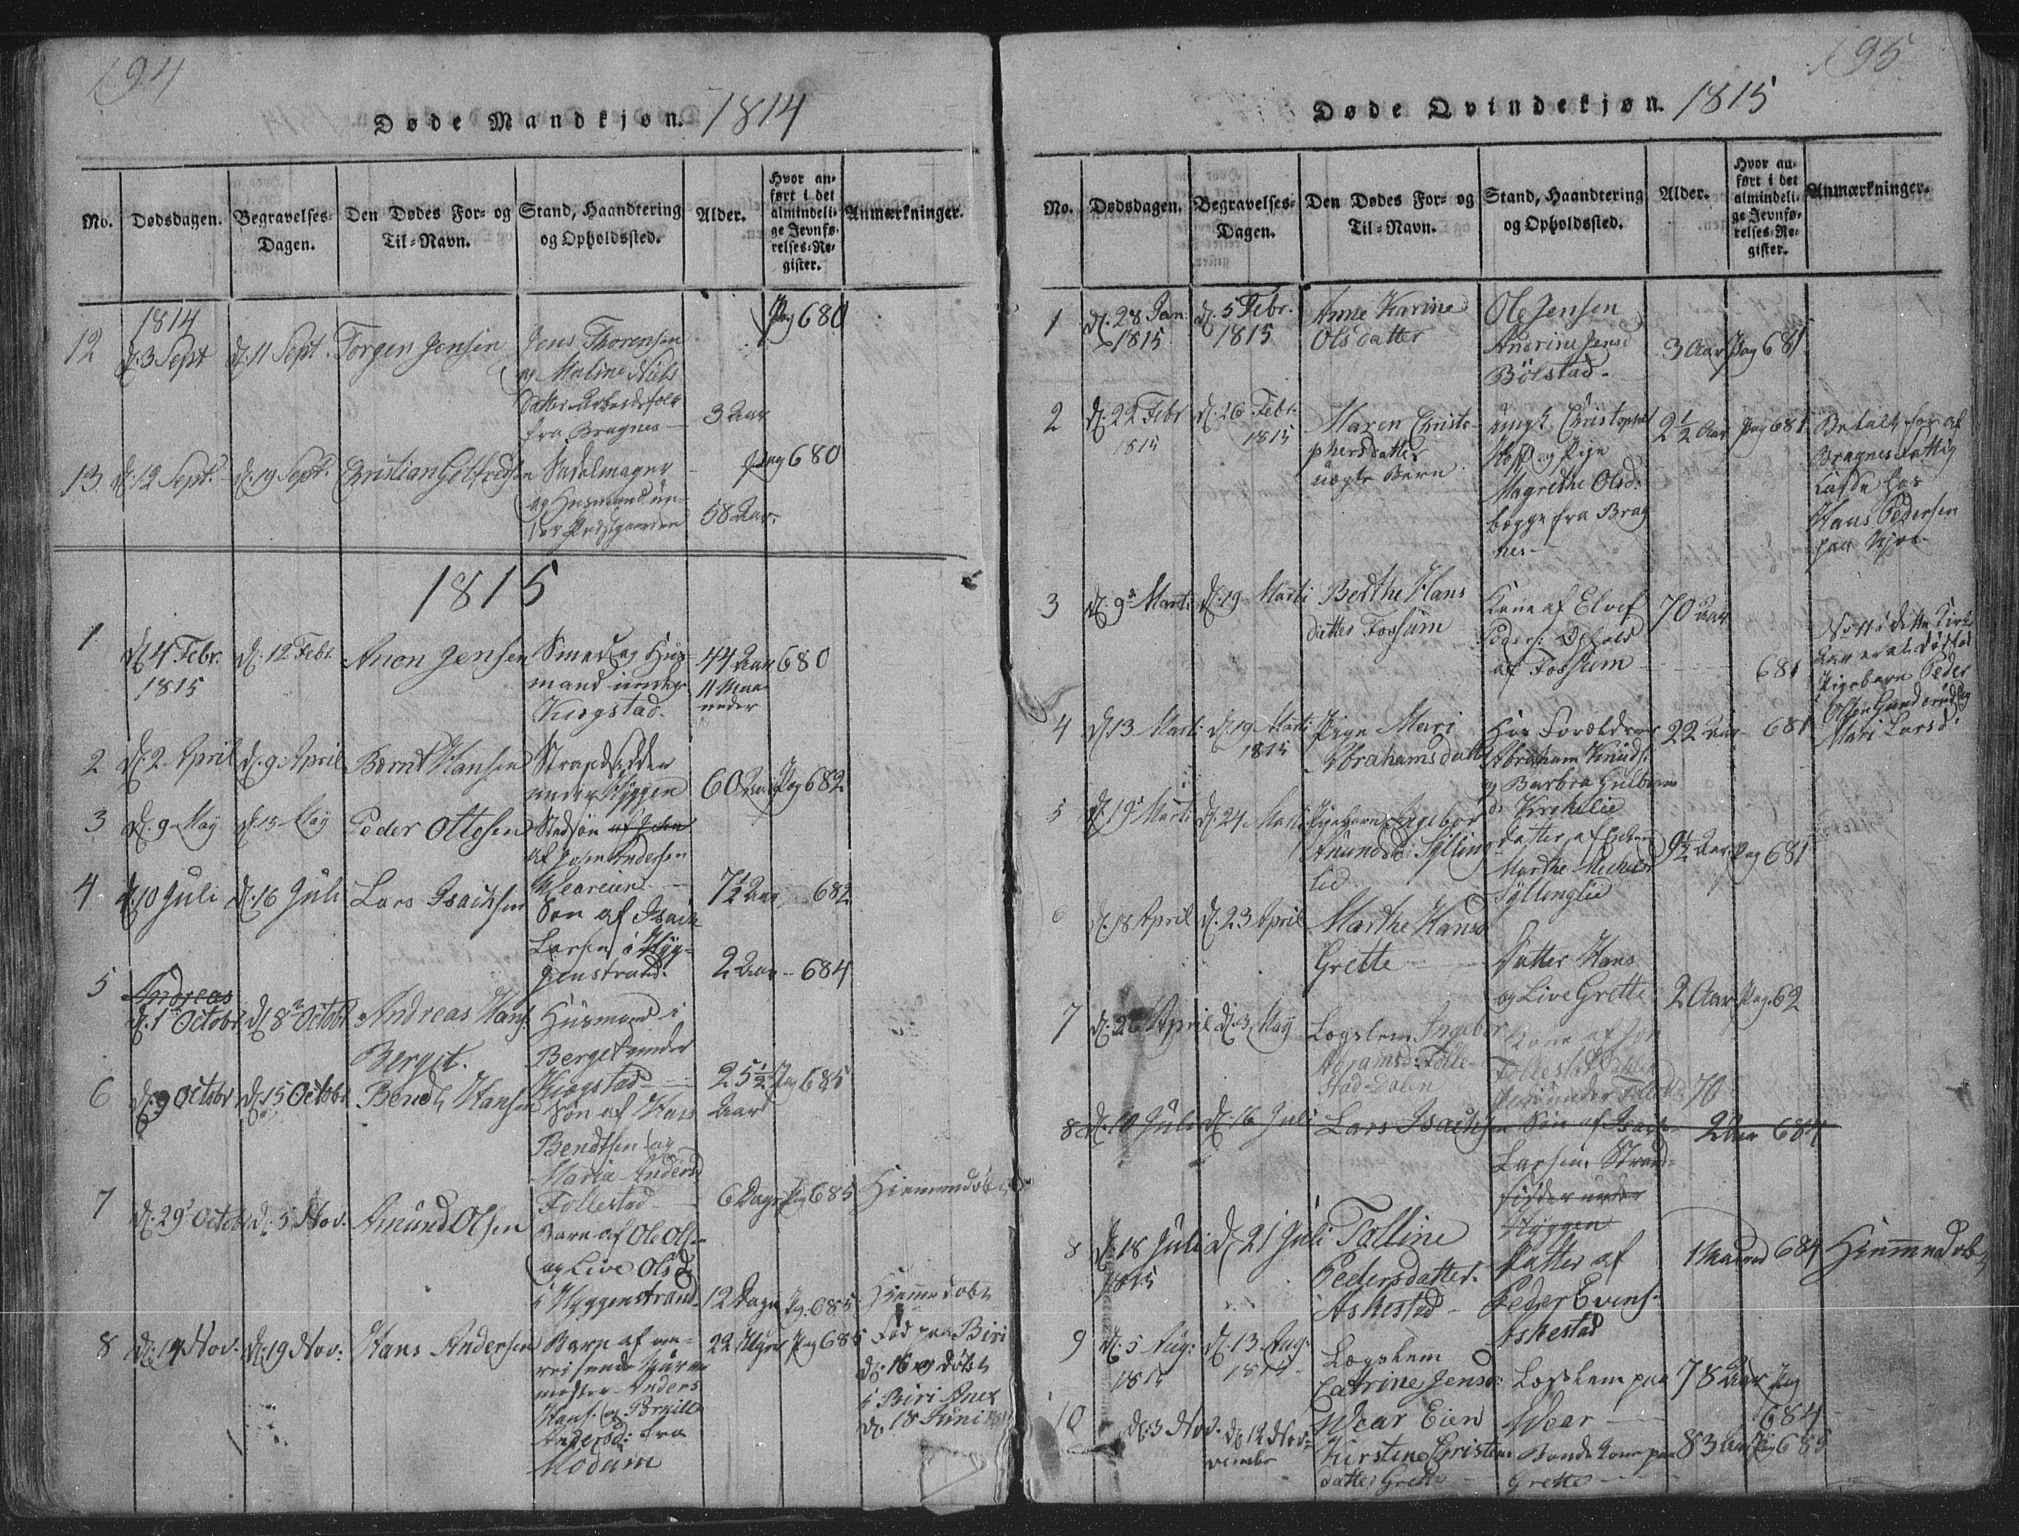 194
Døde Mandkjøn. 1814
No.
Dødsdagen.
Begravelses-
Dagen.
Den Dødes For- og
Til-Navn.
Stand, Haandtering
og Opholdssted.
Alder.
Hvor an-
ført i det
almindeli-
ge Jevnfø-
relses-Re-
gister.
Anmærkninger.
1814
12
d. 3 Sept
d. 11 Sept.
Torgen Jensen
Jens Thorensen
og Maline Niels
datter Arbeidsfolk
fra Bragnes
3 Aar
Pag 680
13
d. 12 Sept.
d. 19 Sept.
Christian Gotfredsen
Sadelmager
og Husmand un-
der Præstgaarden
58 Aar.
pag 680
1815
1
d. 4 Febr.
1815
d. 12 Febr.
Anon Jensen
Smed og Hus-
mand under
Kiøgstad.
44 Aar
11 Maa-
neder
680
2
d. 2 April
d. 9 April
Bernt Hansen
Strandsidder
under Hyggen
60 Aar
Pag 682
3
d. 9 May
d. 15 May
Peder Ottesen
Stedsøn af John
af John Andersen
Weareien
7½ Aar
682
4
d. 10 Juli
d. 16 Juli
Lars Isachsen
Søn af Isach
Larsen i Hyg-
genstrand.
2 Aar
684
5
Andreas
d. 1 Octobr
d. 8 Octobr
Andreas Hans.
Berget.
Husmand i
Berget under
Kiøgstad
25½
Aar
Pag 685
6
d. 9 Octobr
d. 15 Octobr
Bendt Hansen
Søn af Hans
Bendtsen og
Maria Andersd
Follestad
6 Dage
Pag 685
Hiemmedøbt
7
d. 29 Octobr
d. 5 Nov.
Amund Olsen
Barn af Ole Ols-
og Live Olsd
i Hyggenstrand
12 Dage
Pg. 685
Hiemmedøbt
8
d. 14 Nov.
d. 19 Nov:
Hans Andersen
Barn af om-
reisende
Anders
Hans. og Pernille
Andersd: fra
Modum
22 Uger
Pag 685
Fød paa Biri
d. 16 og døbt
i Biri Anex
d. 18 Juni
195
Døde Qvindekjøn. 1815
No.
Dødsdagen.
Begravelses-
Dagen.
Den Dødes For- og
Til-Navn.
Stand, Haandtering
og Opholdssted.
Alder.
Hvor an-
ført i det
almindeli-
ge Jevnfø-
relses-Re-
gister.
Anmærkninger.
1
d. 28 Jan
1815
d. 5 Febr.
1815
Anne Karine
Olsdatter
Ole Jensen
Andrine Jensd
Bølstad.
3 Aar
Pag 681
2
d. 22 Febr
1815
d. 26 Febr.
1815
Maren Christo-
phersdatter
uægte Barn
ungk. Christopher
og Pige
Magrethe Olsd.
begge fra Brag
nes
2½ Aar
Pag 681
Betalt for af
Bragnes Fattig
Casse hos
Hans Pedersen
paa
3
d. 9 Marti
d. 19 Marti
Berthe Hans
datter Fossum
Kone af Elvef
Peders: Ophold
af Fossum
70 Aar
681
dødfød
Pigebarn Peder
Olsen
Mari Larsd:
4
d. 13 Marti
d. 19 Marti
1815
Pige Mari
Abrahamsdatt
Hos Forældre
Abraham Knuds:
og Barbra Gulbran
ds: Kirkelie
22 Aar
681
5
d. 19 Marti
d. 24 Marti
Pigebarn Ingebor
Anunds: Sylling
lie
Datter af
Marthe Michels
Syllinglie
9½ Aar
Pag 681
6
d. 18 April
d. 23 April
Marthe Hansd
Grette
Datter Hans
og Live Grette
2 Aar
Pag. 62
7
d. 26 April
d. 3 May
Lægslem Ingebor
Abramsd: Folle-
stad-Dalen
Kone af
Follestad Dalen
70
8
d. 10 Juli
d. 16 Juli
Lars Isachsen
Søn af Isach
Larsen Strand-
sidder under
Hyggen
2 Aar
684
8
d. 18 Juli
1815
d. 21 Juli
Talline
Pedersdatter.
Askestad
Datter af
Peder Evens.
Askestad
1 Maaned
684
Hiemmedøbt
9
d. 5 Aug:
1815
d. 13 Aug.
1815
Lægslem
Catrine Jensd:
Wear Eien
Lægslem paa
Wear
78 Aar
Pag
684
10
d. 3 Nov.
d. 12 No-
vembr
Kirstine Christens
datter Grette
Bonde Kone paa
Grette
83 Aar
Pag 685